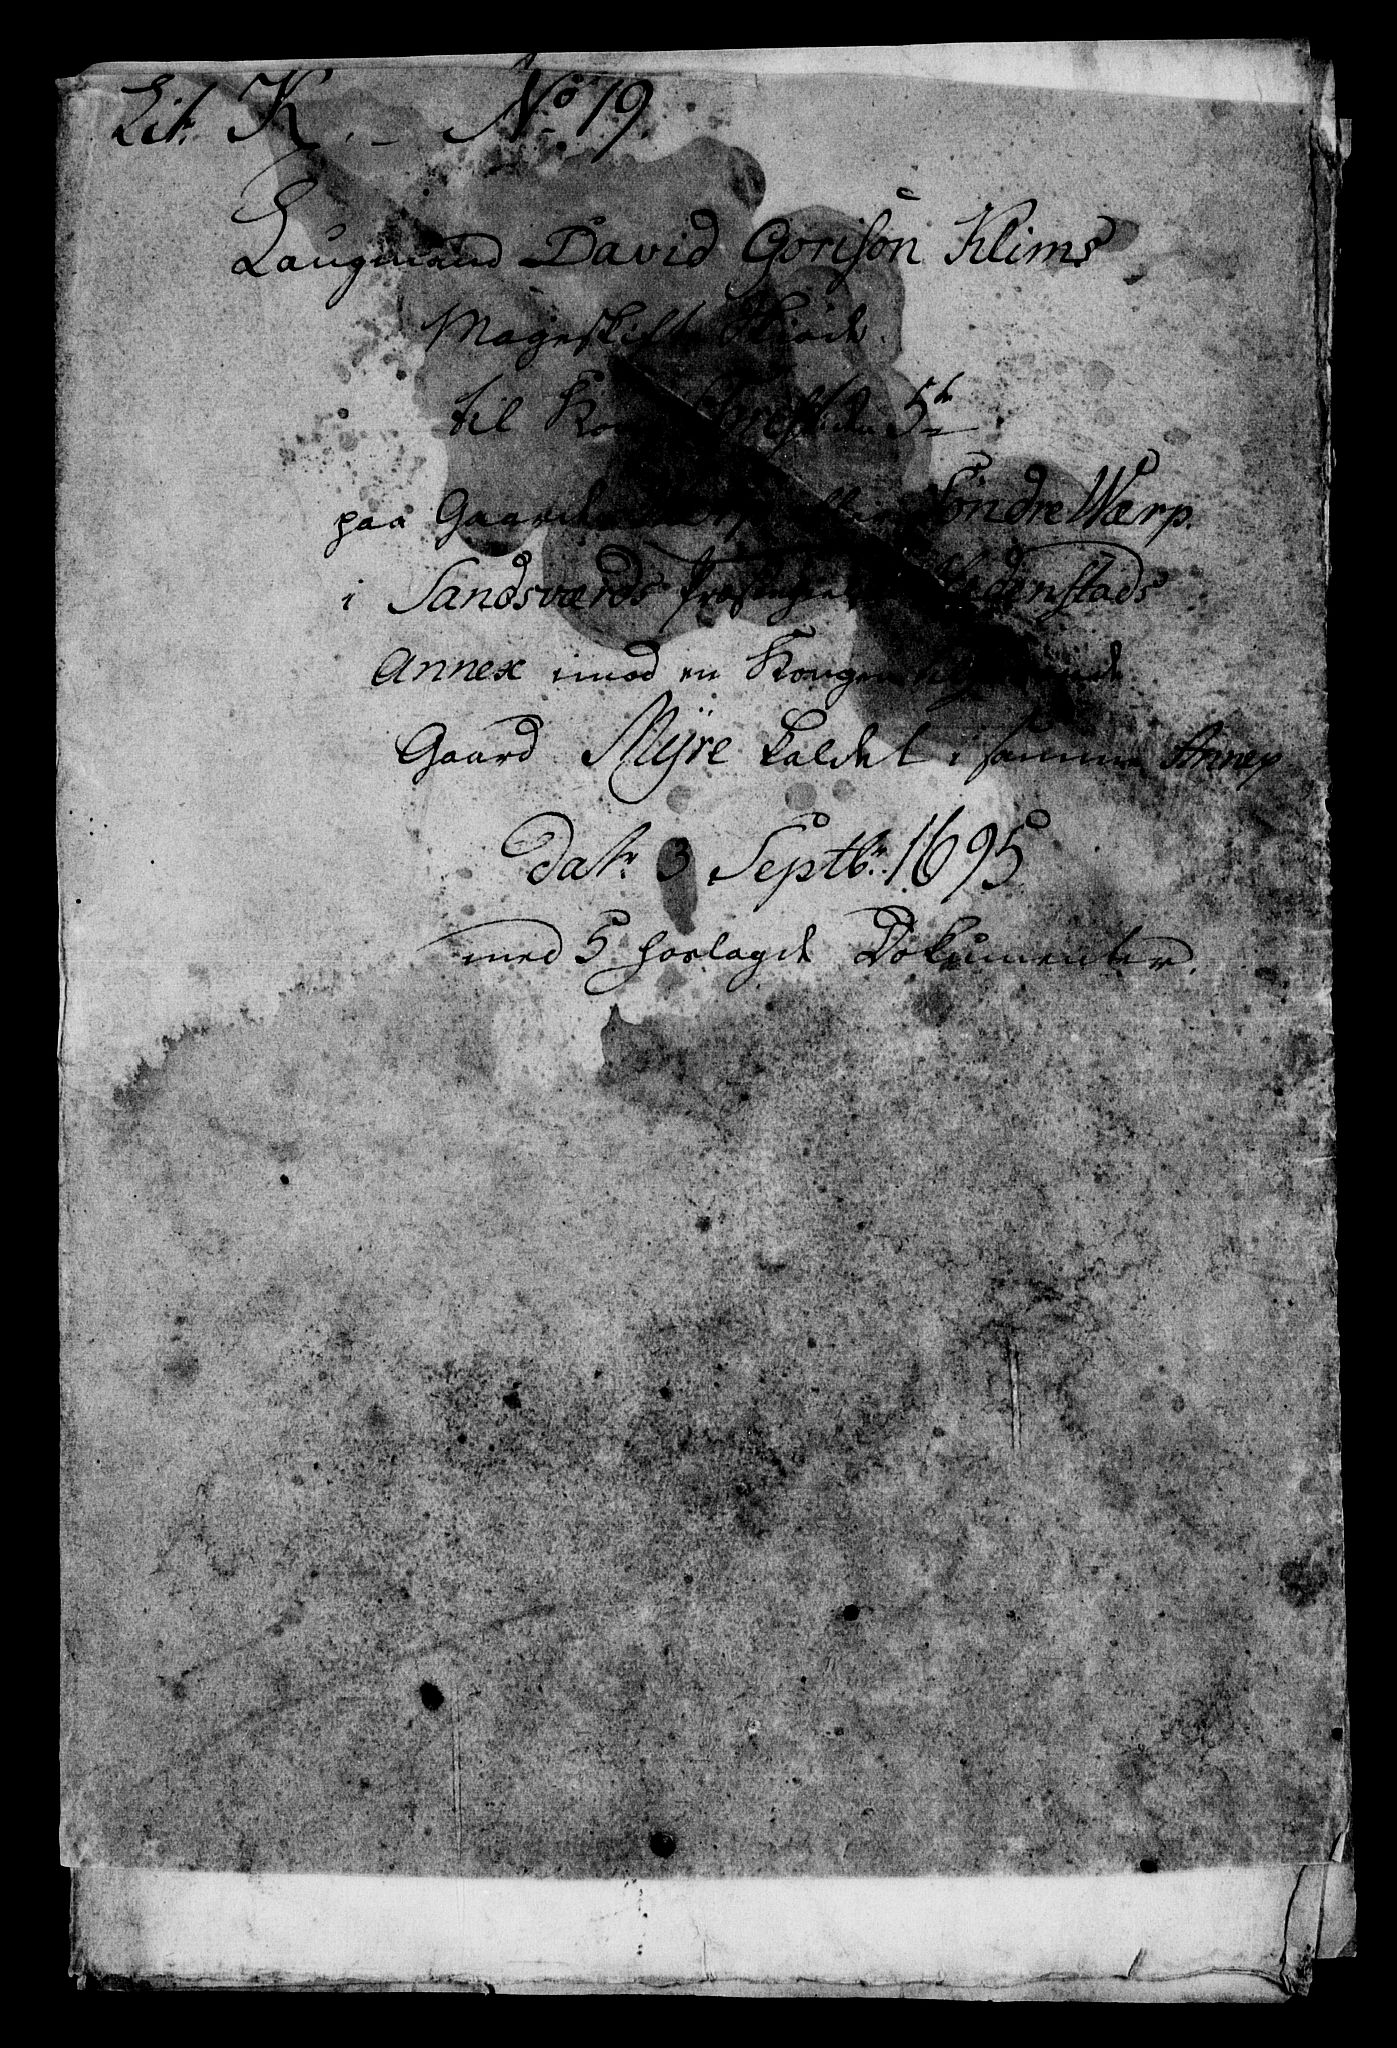 Lit. K. - No 19
Laugmand David Gorison Klims
Mageskifte Skiöde.
til Kong Christ: den 5te
paa Gaarden Werp eller Söndre Wærp.
i Sandsværds Præstegield Hedenstads
Annex imod en Kongen
Gaard Mÿre kaldet i samme Annex
dat: 3 Septbr. 1695
med 5 horlagde Dokumenter.